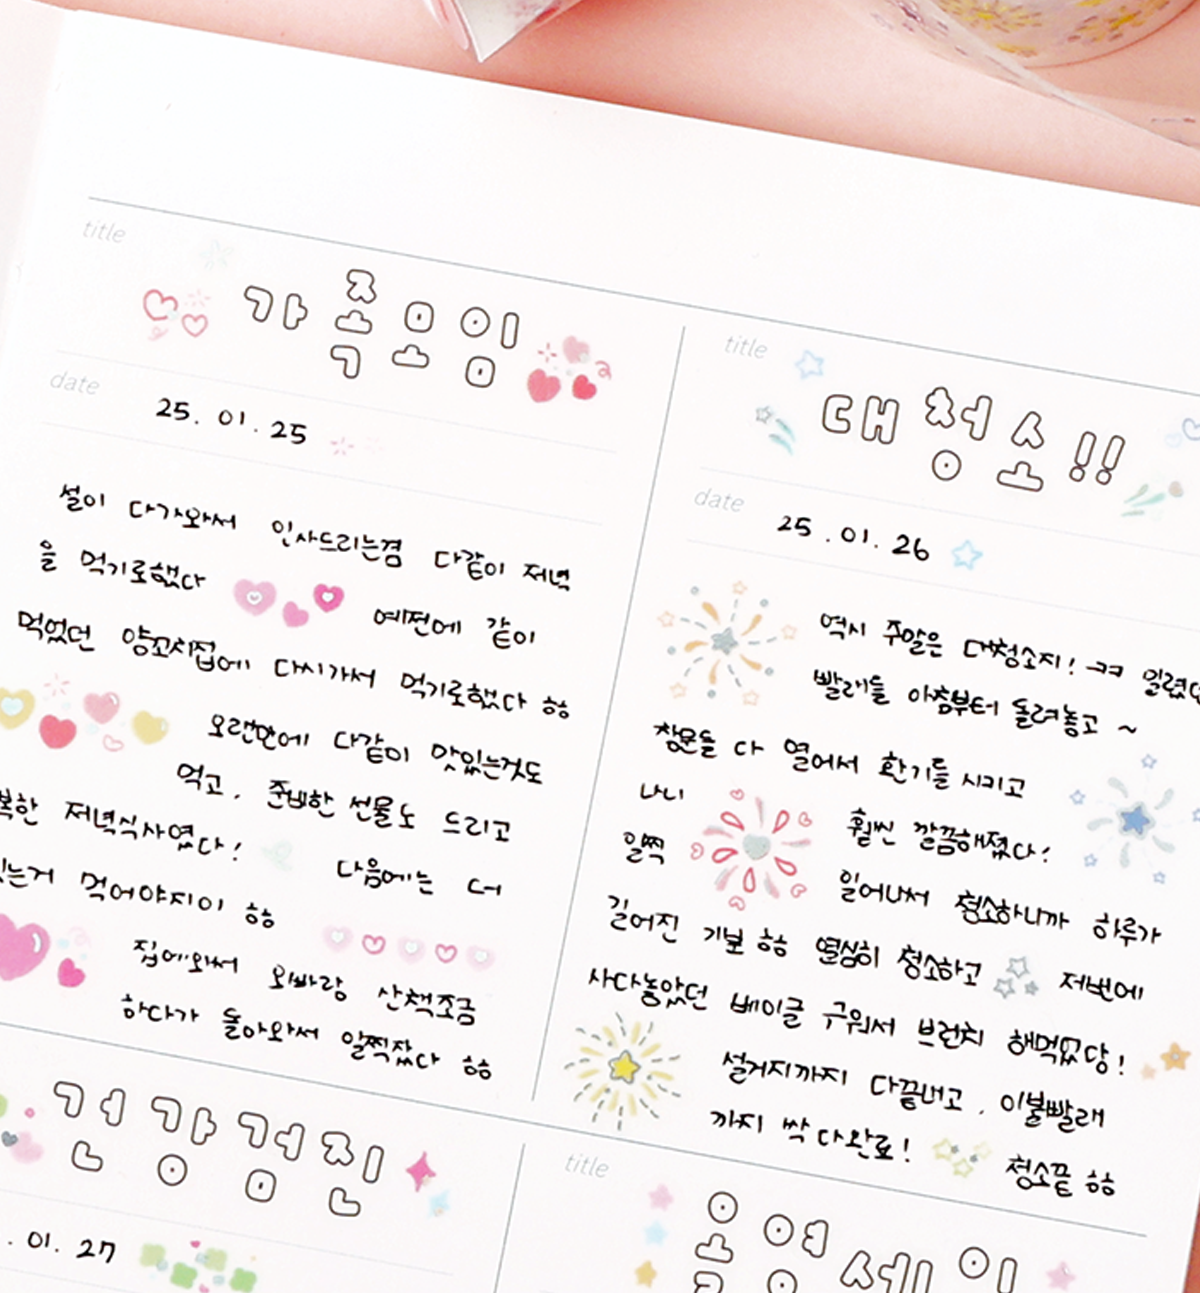 title
가족모임
date
25. 01. 25
설이 다가와서 인사드리는겸 다같이 저녁
을 먹기로했다 예전에 같이
먹었던 양꼬치집에 다시가서 먹기로했다 ㅎㅎ
오랜만에 다같이 맛있는것도
먹고, 준비한 선물도 드리고
저녁식사였다! 다음에는 더
먹어야지이 ㅎㅎ
집에와서 오빠랑 산책조금
하다가 돌아와서 일찍잤다 ㅎㅎ
title
대청소!!
date
25. 01. 26
역시 주말은 대청소지! ㅋㅋ
빨래들 아침부터 돌려놓고 ~
창문들 다 열어서 환기를 시키고
나니 훨씬 깔끔해졌다!
일찍 일어나서 청소하니까 하루가
길어진 기분 ㅎㅎ 열심히 청소하고 저번에
사다놓았던 베이글 구워서 브런치 해먹었당!
설거지까지 다끝내고, 이불빨래
까지 싹 다완료! 청소끝 ㅎㅎ
건강검진
. 01. 27
title